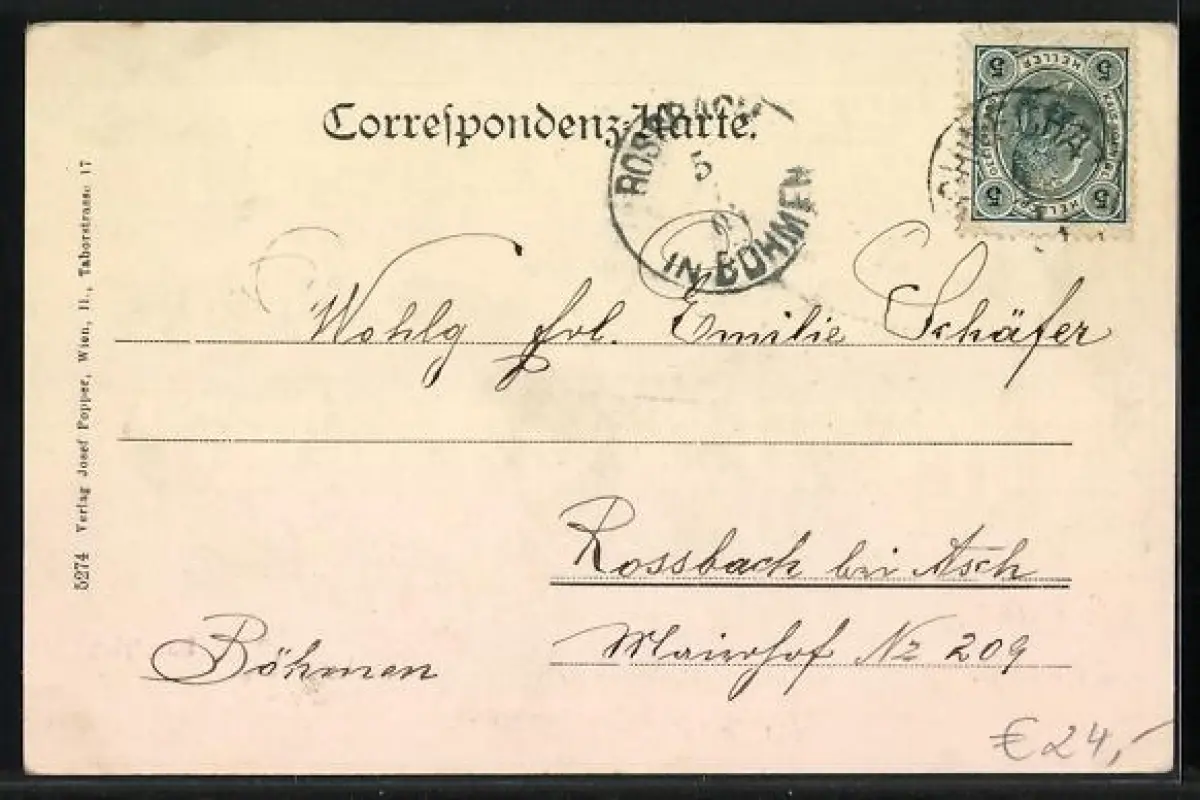 Correspondenz-Karte.
5 HELLER 5
5 HELLER 5
ROSSBACH
5
IN BÖHMEN
Wohlg Frl. Emilie Schäfer
Rossbach bei Asch
Maierhof Nz 209
Böhmen
5274 Verlag Josef Popper, Wien, II., Taborstrasse 17
€ 24,-